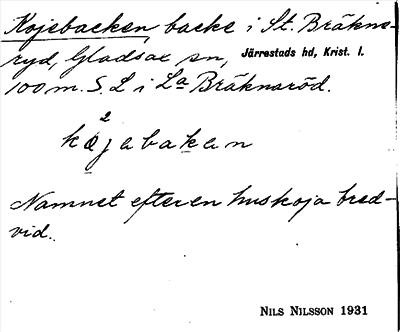 Kojebacken, backe i St. Bräkne-
ryd, Gladsax sn, Järrestads hd, Krist. l.
100 m. S. L i La Bräknaröd.
2
kojabakan
Namnet efter en huskoja bred-
vid.
NILS NILSSON 1931